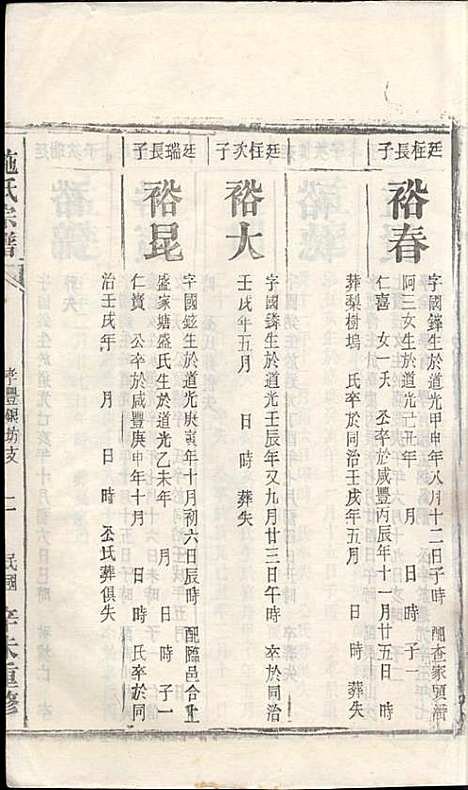 廷枉長子
裕春
字國鋒生於道光甲申年八月十二日子時 配查家頭潘
阿三女生於道光己丑年 月 日 時 子一
仁喜 女一夭 公卒於咸豐丙辰年十一月廿五日時
葬梨樹塢 氏卒於同治壬戌年五月 日 時葬失
廷枉次子
裕大
字國鏻生於道光壬辰年又九月廿三日午時 卒於同治
壬戌年五月 日 時 葬失
廷瑞長子
裕昆
字國鉉生於道光庚寅年十月初六日辰時 配臨邑合上
盛家塘盛氏生於道光乙未年 月 日 時 子一
仁贊 公卒於咸豐庚申年十月 日 時 氏卒於同
治壬戌年 月 日 時 公氏葬俱失
施氏宗譜
孝豐銀坊支
二
民國辛未重修